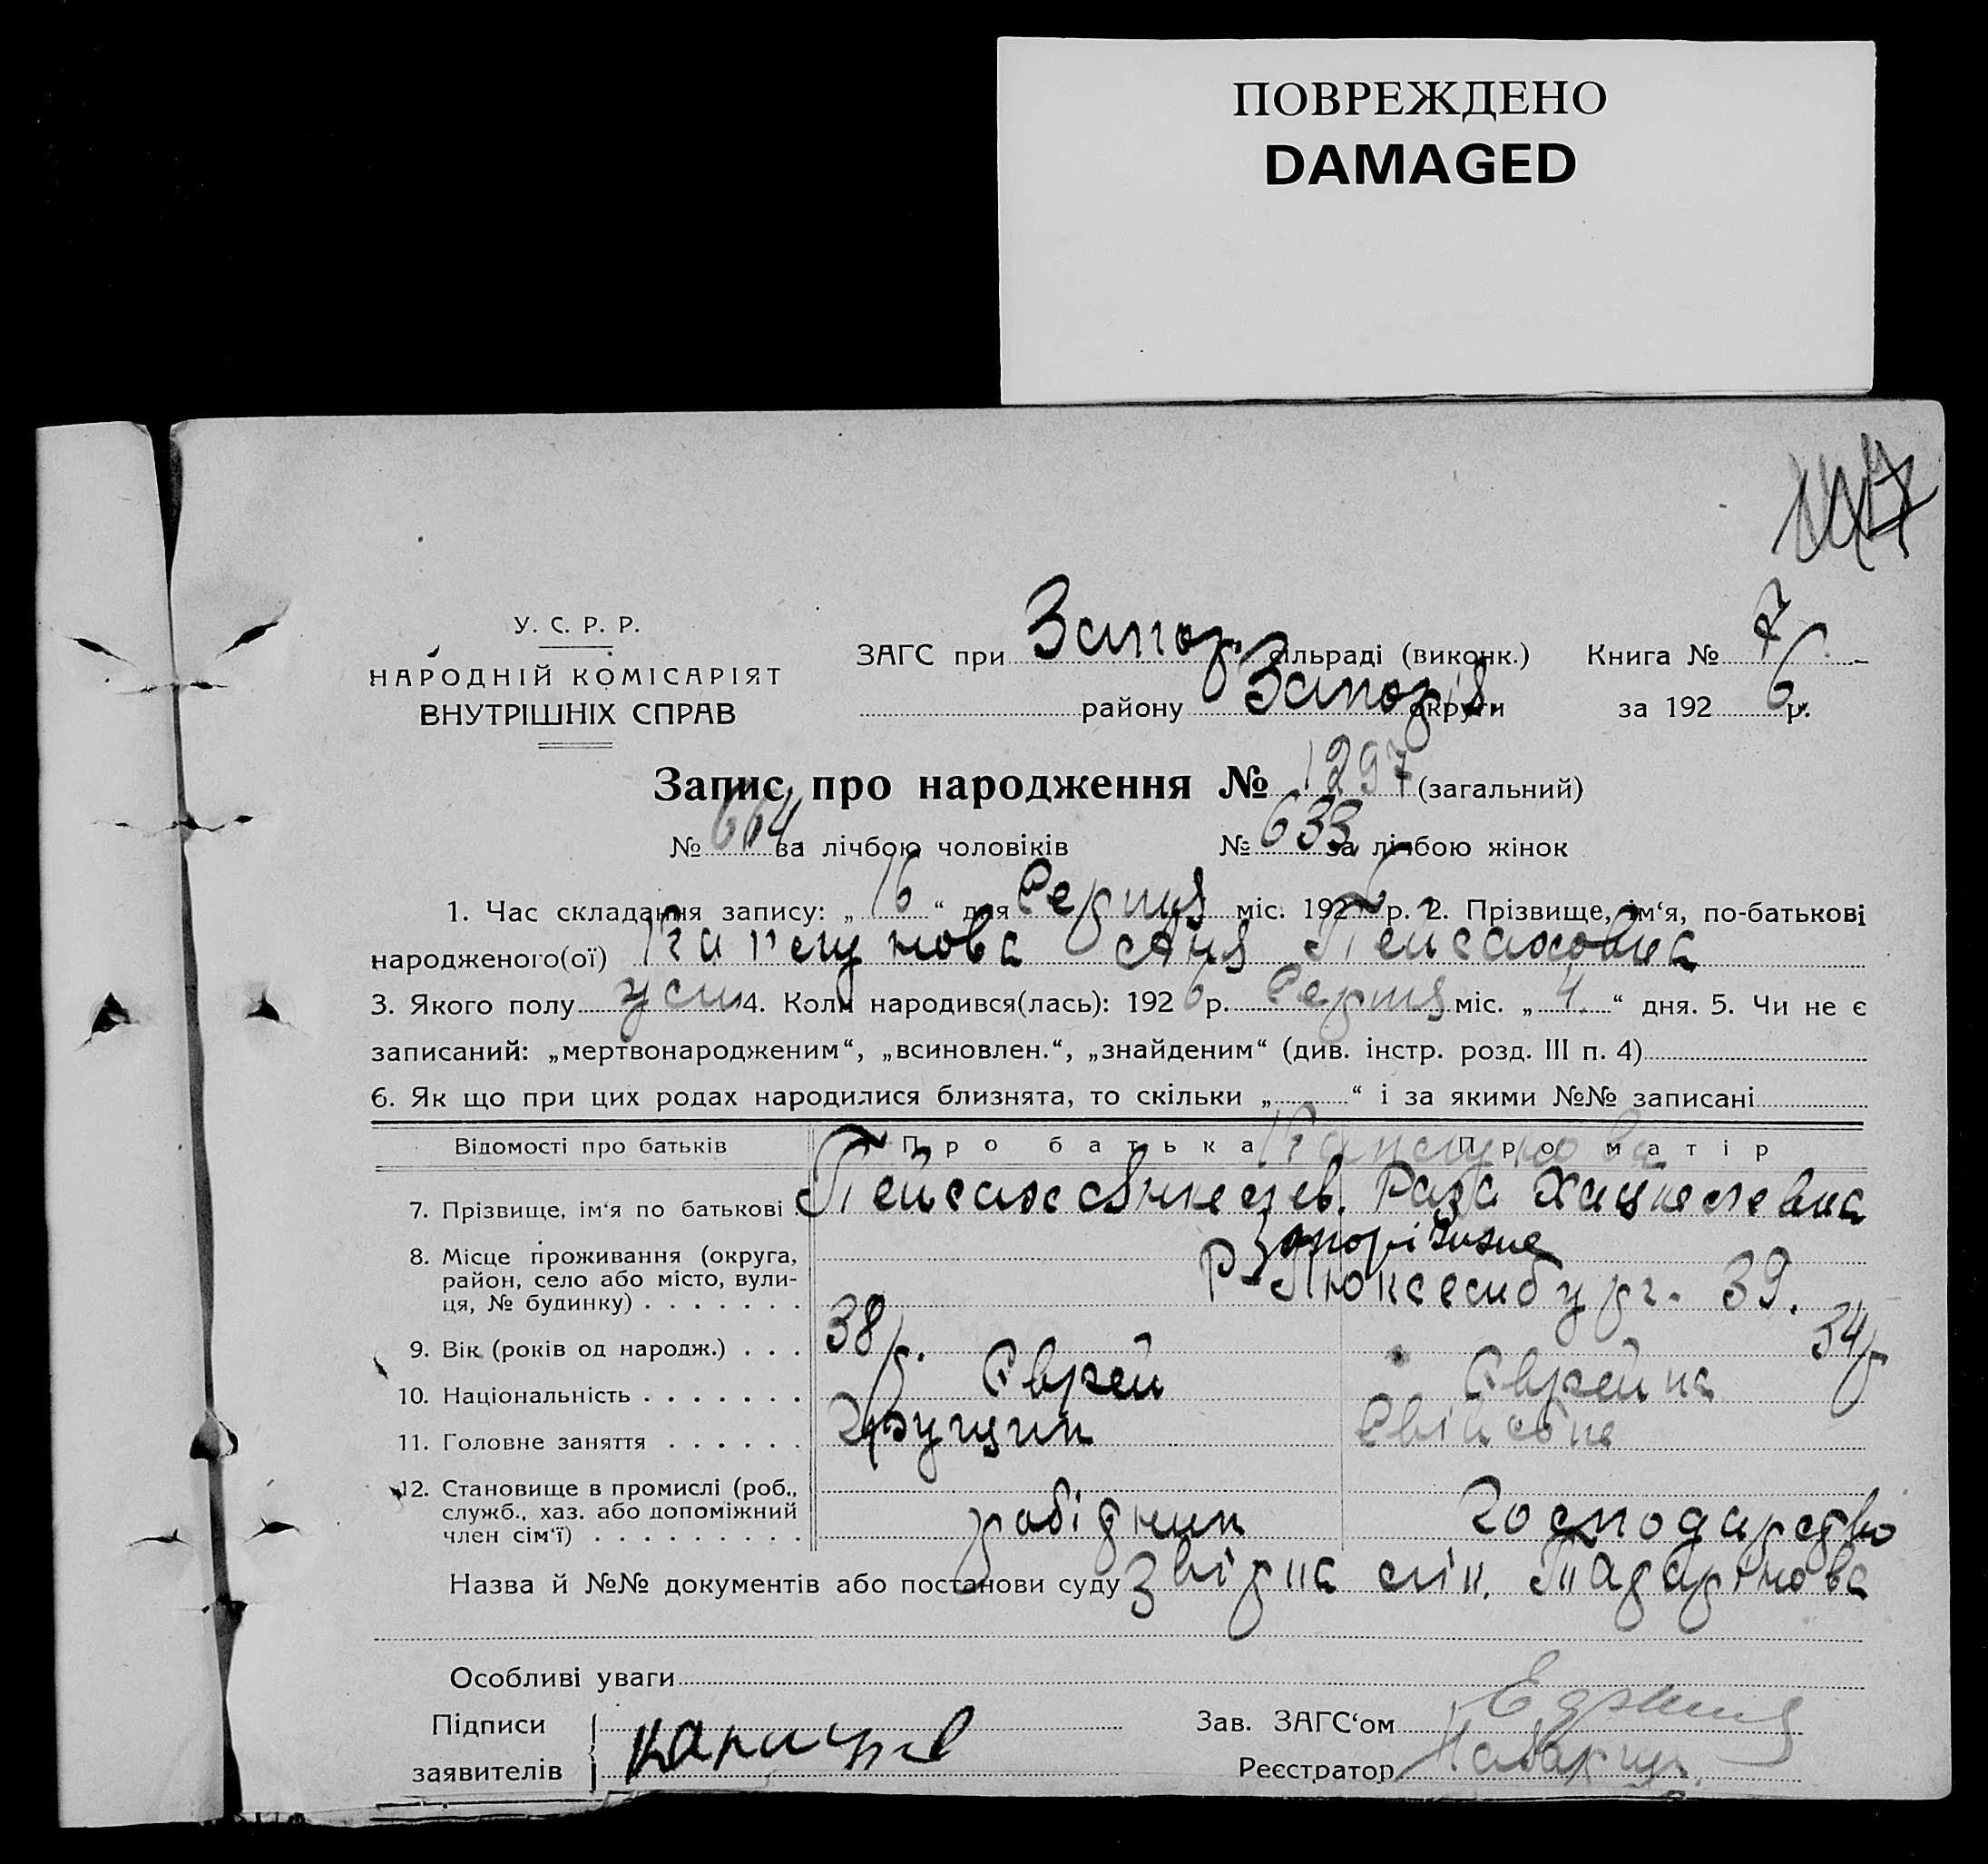 ПОВРЕЖДЕНО
DAMAGED
У. С. Р. Р.
НАРОДНІЙ КОМІСАРІЯТ
ВНУТРІШНІХ СПРАВ
ЗАГС при Запор. сільраді (виконк.) Книга № 7
району Запоріз. округи за 1926 р.
Запис про народження № 1297 (загальний)
№ 664 за лічбою чоловіків № 633 за лічбою жінок
1. Час складання запису: „16“ дня Серпня міс. 1926 р. 2. Прізвище, ім‘я, по-батькові
народженого(ої) Капсунова Аня Пейсаховна
3. Якого полу 4. Коли народився(лась): 1926 р. Серпня міс. „4“ дня. 5. Чи не є
записаний: „мертвонародженим“, „всиновлен.“, „знайденим“ (див. інстр. розд. III п. 4)
6. Як що при цих родах народилися близнята, то скільки „ “ і за якими №№ записані
Відомості про батьків Про батька Про матір
Капсунова
7. Прізвище, ім‘я по батькові Пейсах Раза
8. Місце проживання (округа, район, село або місто, вулиця, № будинку) Запоріжжє
Р-Люксембург. 39.
9. Вік (років од народж.) 38 р. 34 р
10. Національність Єврей Єврейка
11. Головне заняття Грущик Свійське
12. Становище в промислі (роб., служб., хаз. або допоміжний член сім‘ї) робідник господарство
Назва й №№ документів або постанови суду Звідка лік.
Особливі уваги
Підписи заявителів
Зав. ЗАГС‘ом
Реєстратор